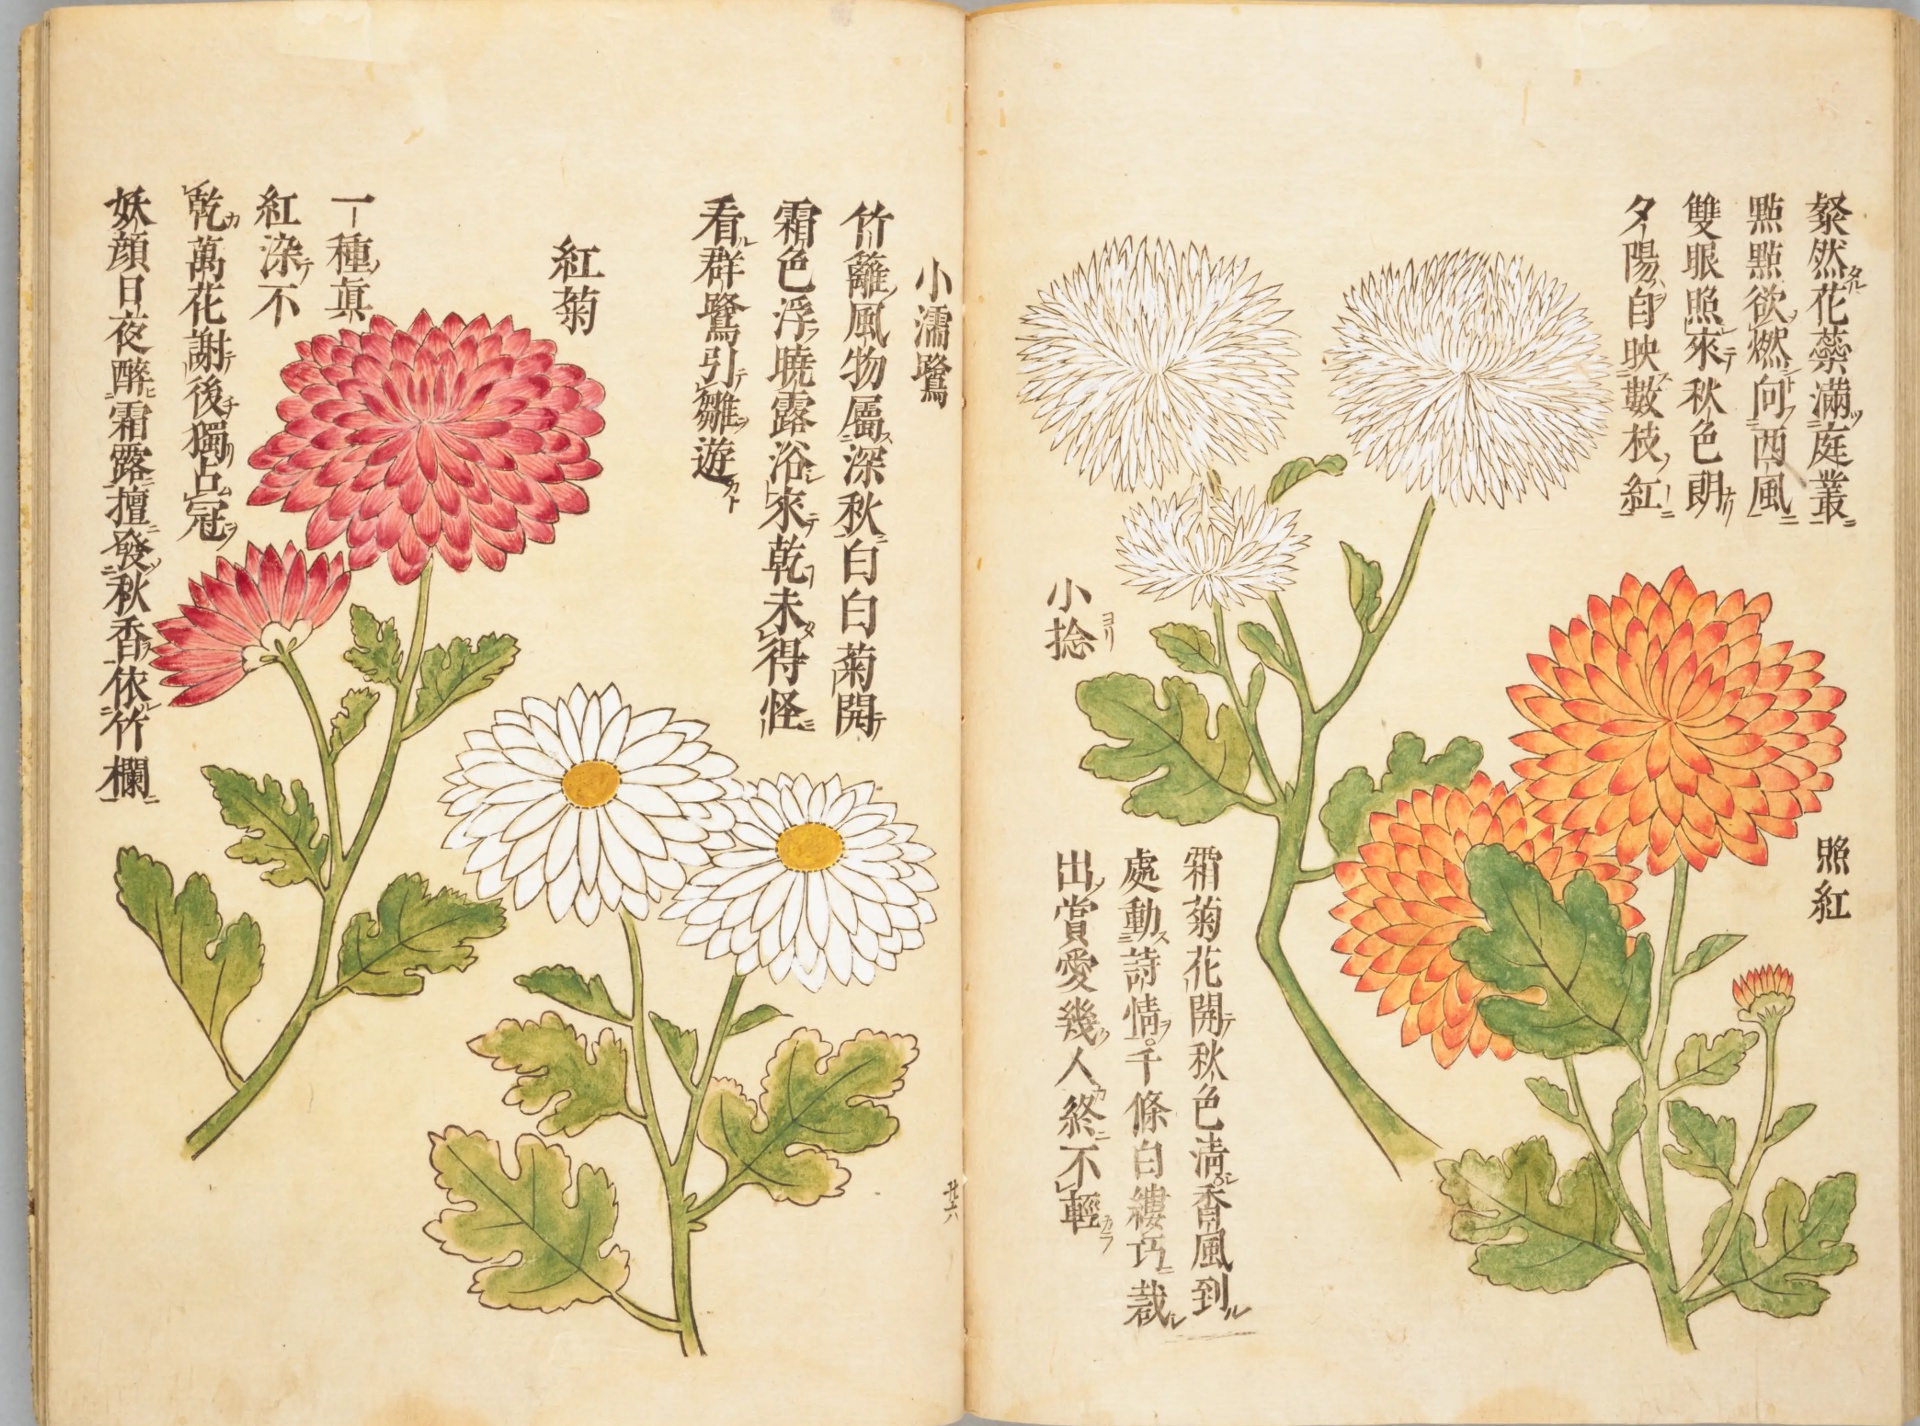 照紅
粲然花蘂滿庭叢
點點欲燃向西風
雙眼照來秋色朗
夕陽自映數枝紅
小捻
霜菊花開秋色淸香風到
處動詩情千條白縷巧裁
出賞愛幾人終不輕
小濡鷺
竹籬風物屬深秋白白菊開
霜色浮曉露浴來乾未得怪
看群鷺引雛遊
紅菊
一種眞
紅染不
乾萬花謝後獨占冠
妖顏日夜醉霜露擅發秋香依竹欄
廿六